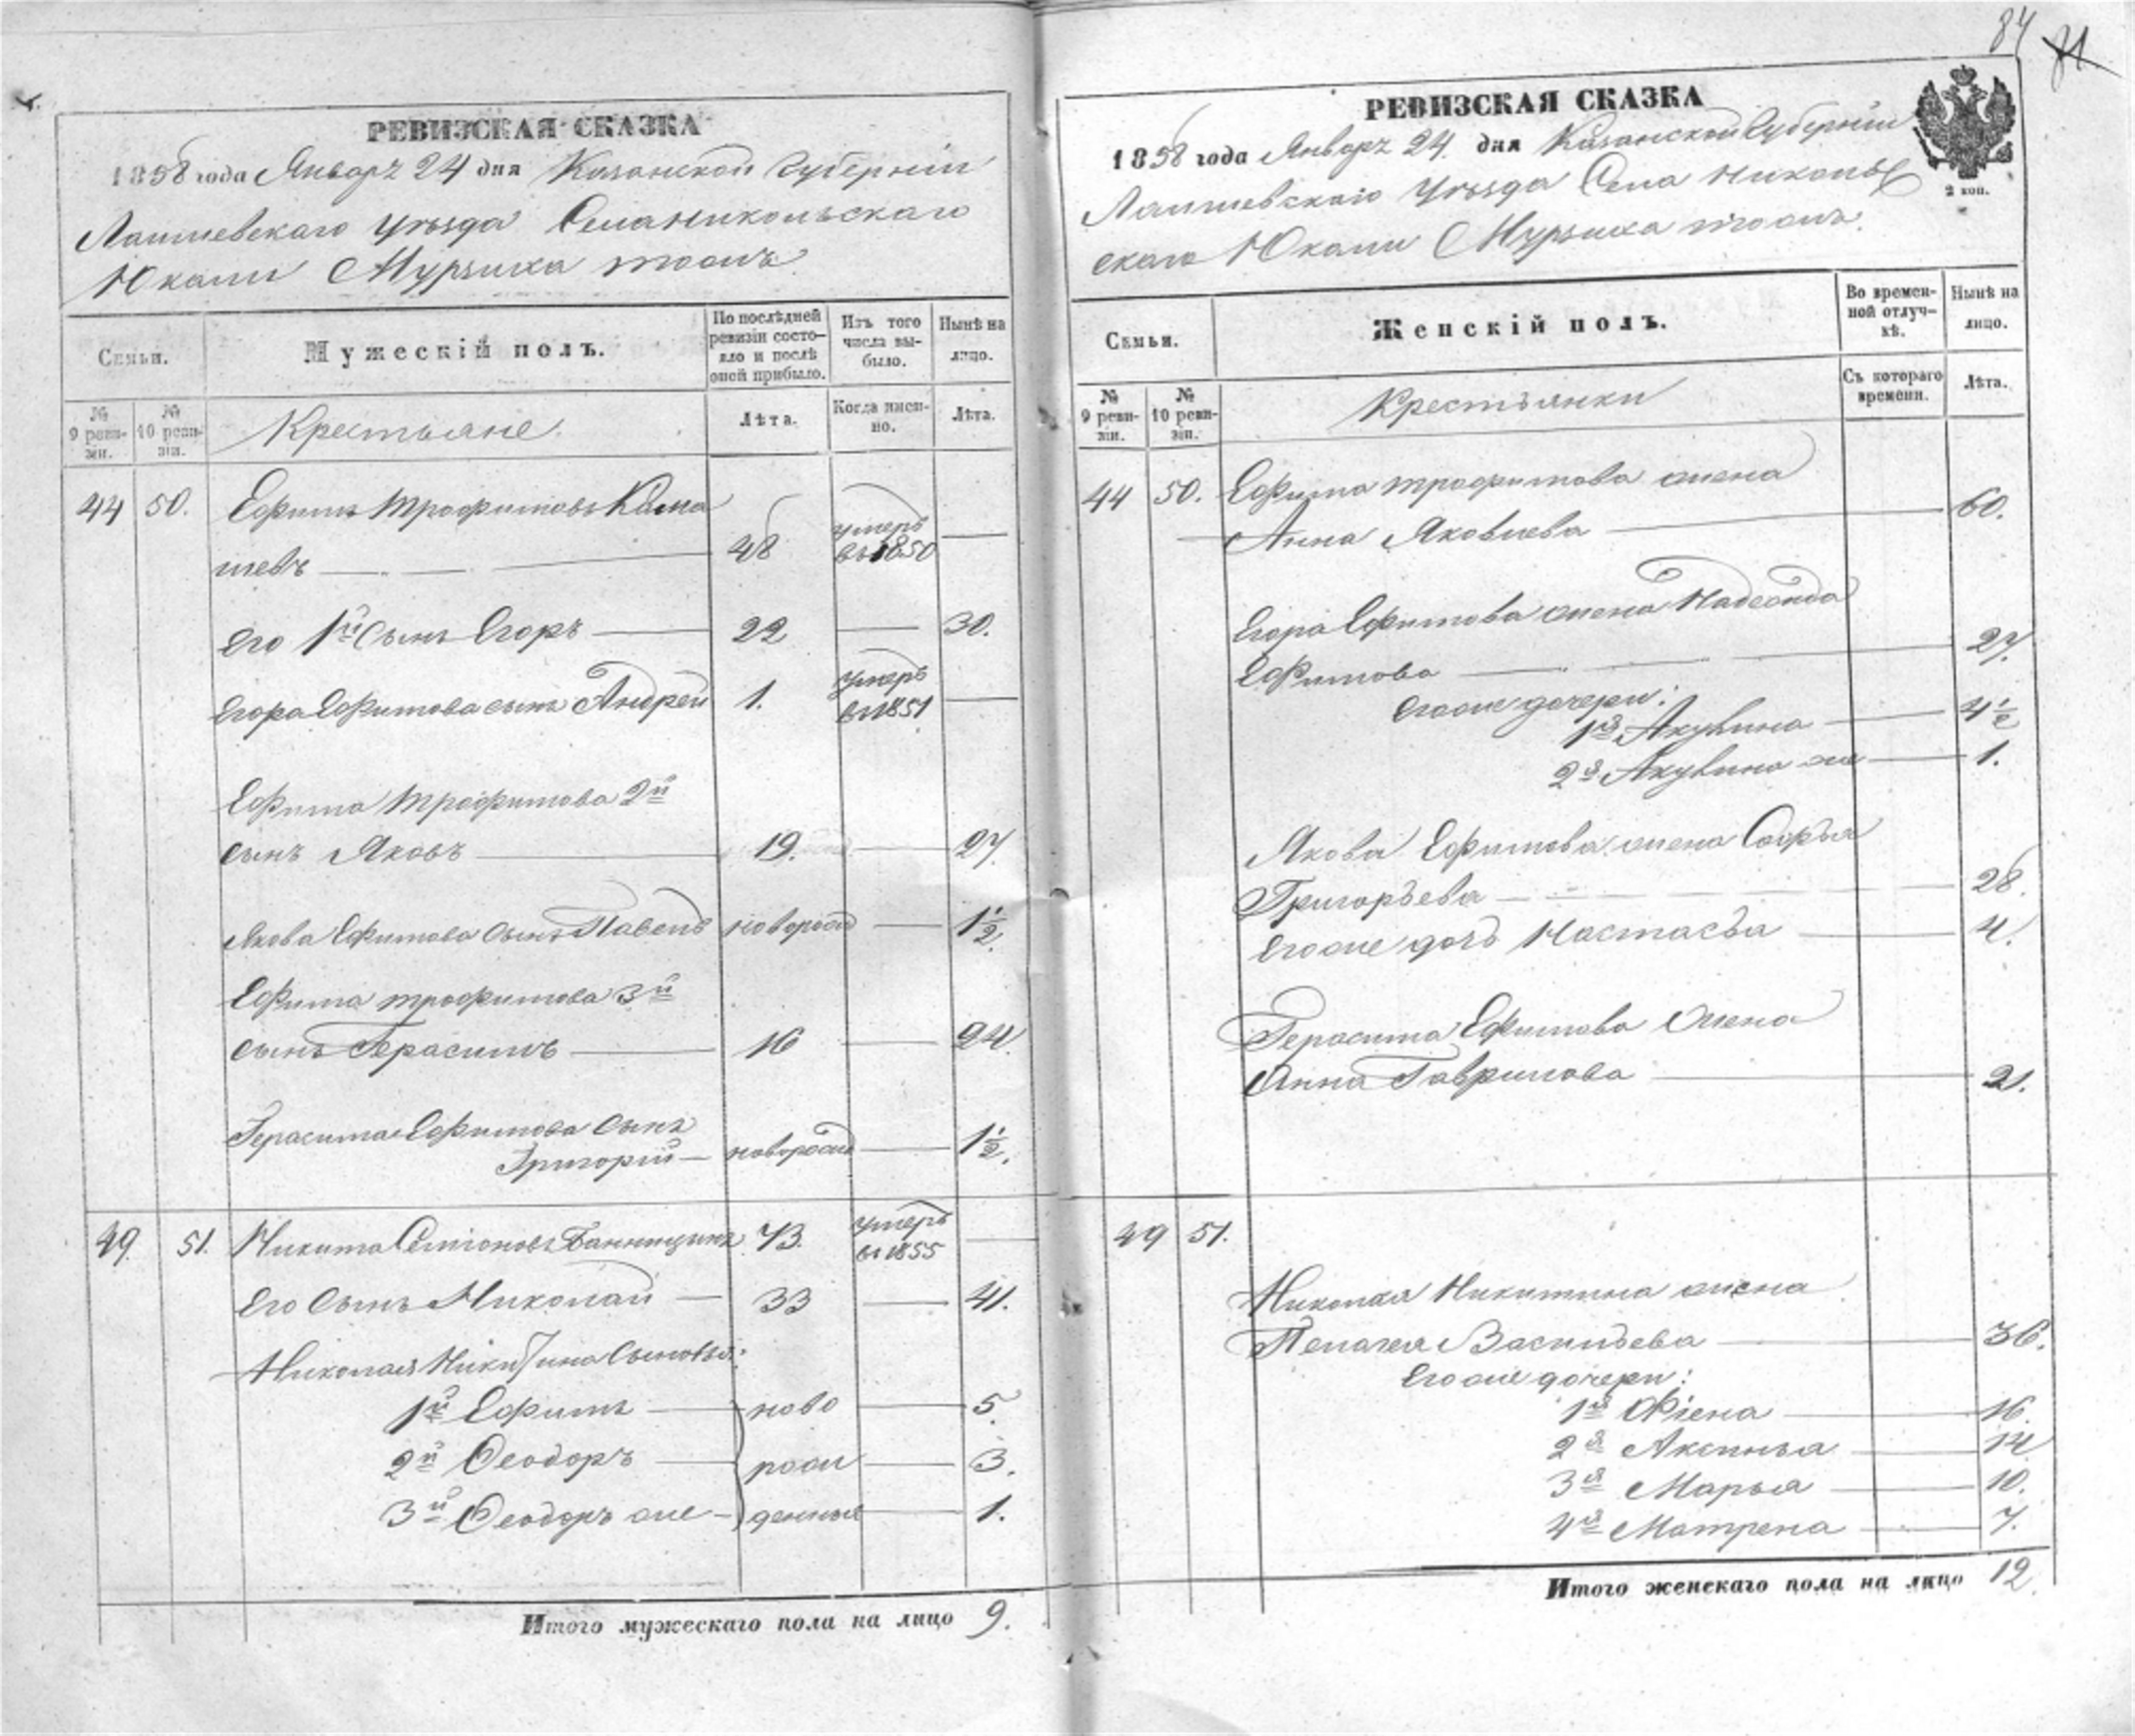 84 81
РЕВИЗСКАЯ СКАЗКА
1858 года Январъ 24 дня Казанской Губерніи
Лаишевскаго Уѣзда Села Никольскаго
Юкали Мурзиха тожъ
Семьи.
Мужескій полъ.
По послѣдней ревизіи состояло и послѣ оной прибыло.
Изъ того числа выбыло.
Нынѣ на лицо.
№ 9 ревизіи.
№ 10 ревизіи.
Крестьяне.
Лѣта.
Когда имянно.
Лѣта.
44 50. Ефимъ Трофимовъ Кама
шевъ 48 умеръ въ 1850
Его 1й Сынъ Егоръ 22 30.
Егора Ефимова сынъ Андрей 1. умеръ въ 1851
Ефима Трофимова 2й
сынъ Яковъ 19. 27.
Якова Ефимова Сынъ Павелъ новорожд 1 1/2
Ефима трофимова 3й
сынъ Герасимъ 16 24.
Герасима Ефимова Сынъ
Григорій новорожд 1 1/2.
49. 51. Никита Семіоновъ Банницынъ 73. умеръ въ 1855
Его Сынъ Николай 33 41.
Николая Никитина Сыновья:
1й Ефимъ ново 5.
2й Феодоръ рож 3.
3й Феодоръ же денныя 1.
Итого мужескаго пола на лицо 9.
РЕВИЗСКАЯ СКАЗКА
2 коп.
1858 года Январъ 24. дня Казанской Губерніи
Лаишевскаго Уѣзда Села Николь
скаго Юкали Мурзиха тожъ.
Семьи.
Женскій полъ.
Во временной отлучкѣ.
Нынѣ на лицо.
№ 9 ревизіи.
№ 10 ревизіи.
Крестьянки
Съ котораго времени.
Лѣта.
44 50. Ефима трофимова жена
Анна Яковлева 60.
Егора Ефимова жена Надежда
Ефимова 27.
Егоже дочери:
1я Акулина 4 1/2
2я Акулина же 1.
Якова Ефимова жена Софья
Григорьева 28.
Егоже дочь Настасья 4.
Герасима Ефимова Жена
Анна Гаврилова 21.
49 51.
Николая Никитина жена
Пелагея Васильева 36.
Егоже дочери:
1я Фіена 16.
2я Аксинья 14
3я Марья 10.
4я Матрена 7.
Итого женскаго пола на лицо 12